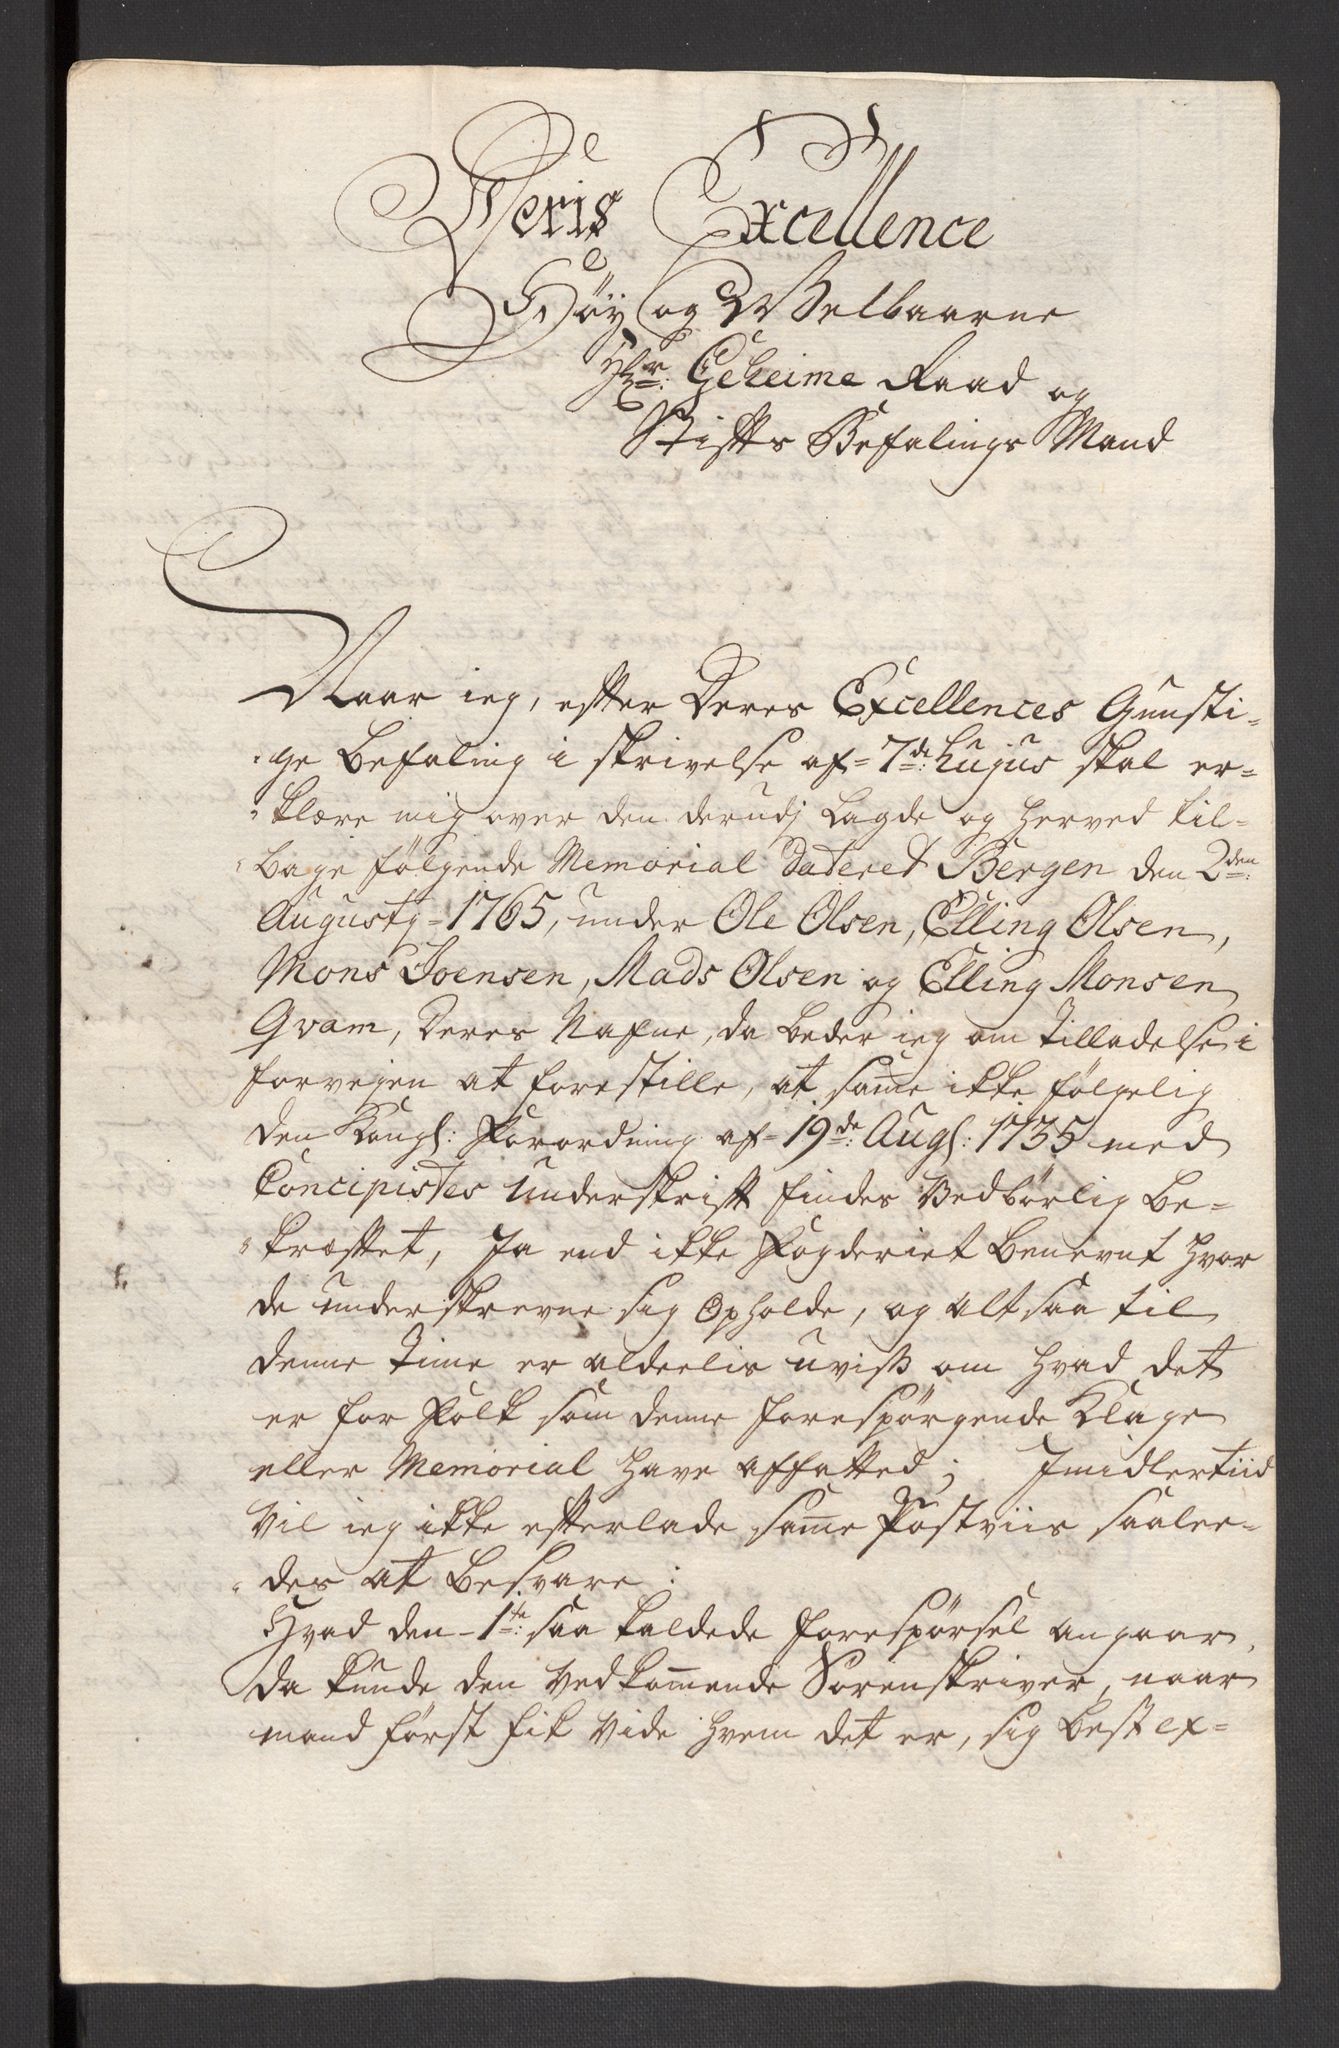 Deris Excellence
Höy og Welbaarne
Hr: Geheime Raad og
Stifts Befalings Mand
Naar ieg, efter Deres Excellences Gunsti-
ge Befaling i skrivelse af 7de: hujus skal er-
klære mig over den derudj Lagde og herved til-
bage følgende Memorial dateret Bergen den 2den:
Augusty 1765, under Ole Olsen, Elling Olsen,
Mons Joensen, Mads Olsen og Elling Monsen
Qvam, Deres Nafne, da beder ieg om Tilladelse i
forvejen at forestille, at same ikke følgelig
den Kongl: Forordning af 19de: Augl: 1735 med
Concipistes underskrift findes Vedbörlig Be-
kræftet, Ja end ikke Fogderiet benevnt hvor
de underskrevne sig opholde, og altsaa til
denne Time er alderlis uviss om hvad det
er for Folk som denne forespörgende Klage
eller Memorial have affatted; Imidlertiid
Vil ieg ikke efterlade same Postviis saalee-
des at besvare:
Hvad den 1te: saa kaldede forespörsel angaar,
da kunde den vedkomende Sorenskriver, naar
mand først fik vide hvem det er, sig best ex-